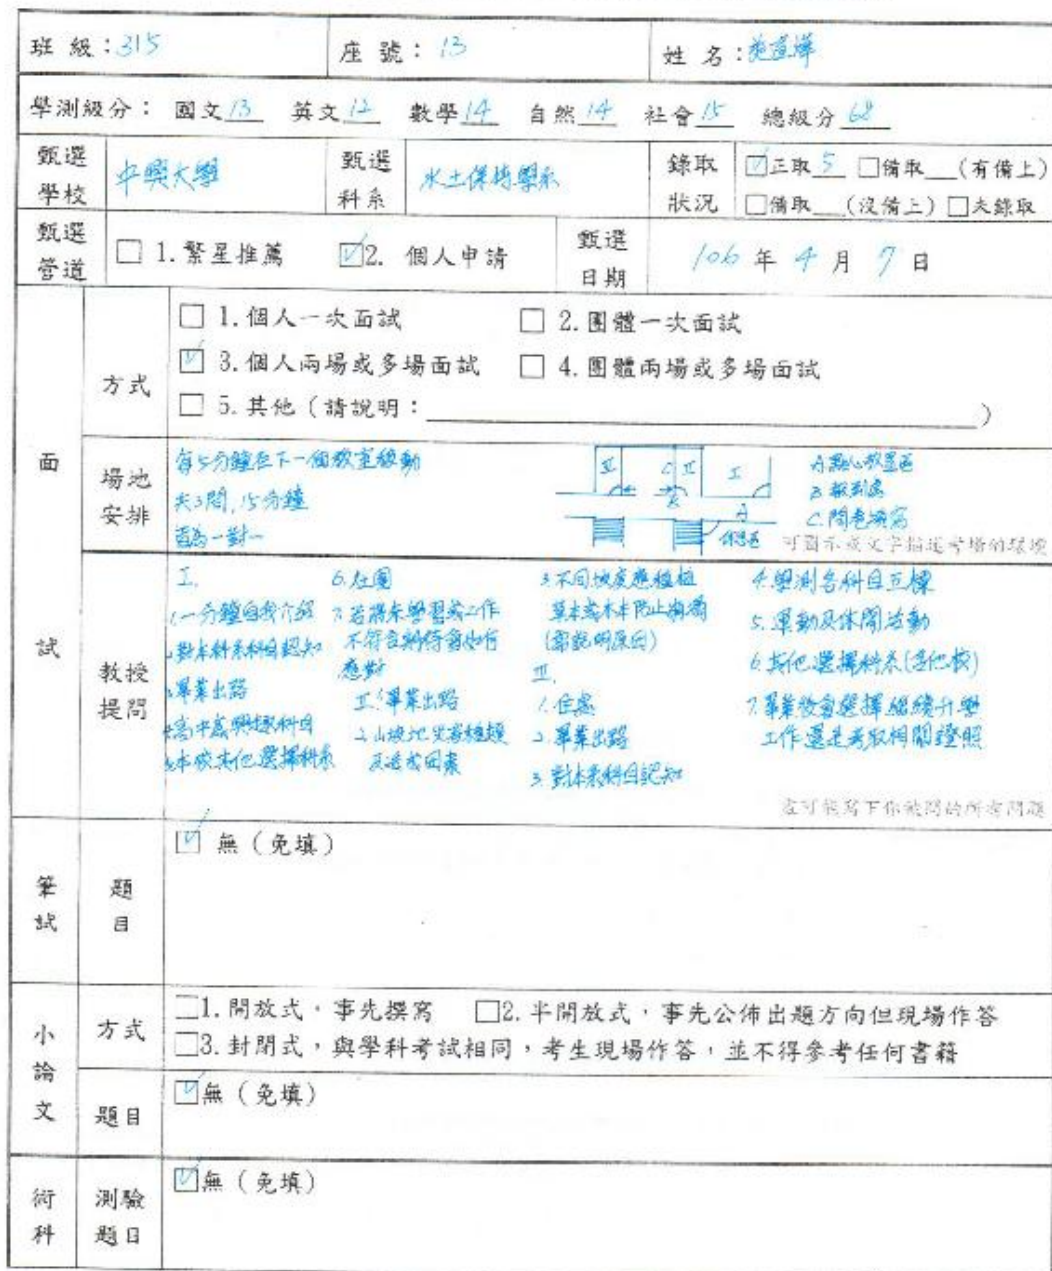 班 級:315 座 號:13 姓 名:
學測級分: 國文13 英文12 數學14 自然14 社會15 總級分68
甄選學校 中興大學 甄選科系 水土保持學系 錄取狀況 ☑正取5 □備取__(有備上)
□備取__(沒備上) □未錄取
甄選管道 □ 1.繁星推薦 ☑2. 個人申請 甄選日期 106 年 4 月 7 日
面試
方式
□ 1.個人一次面試 □ 2.團體一次面試
☑ 3.個人兩場或多場面試 □ 4.團體兩場或多場面試
□ 5.其他(請說明:____)
場地安排
每5分鐘至下一個教室移動
共3間,15分鐘
皆為一對一
Ⅲ C Ⅱ Ⅰ
B A
休息區
A.點心放置區
B.報到處
C.問卷填寫
可圖示或文字描述考場的環境
教授提問
I.
1.一分鐘自我介紹
2.對本科系科目認知
3.畢業出路
4.高中感興趣科目
5.本校其他選擇科系
6.社團
7.若將來學習或工作
不符合期待會如何
應對
Ⅱ.1.畢業出路
2.山坡地災害種類
及造成因素
3.不同坡度應種植
草本或木本防止崩塌
(需說明原因)
Ⅲ.
1.住處
2.畢業出路
3.對本系科目認知
4.學測各科目五標
5.運動及休閒活動
6.其他選擇科系(含他校)
7.畢業後會選擇繼續升學
工作還是考取相關證照
盡可能寫下你被問的所有問題
筆試
題目
☑ 無(免填)
小論文
方式
□1.開放式,事先撰寫 □2.半開放式,事先公佈出題方向但現場作答
□3.封閉式,與學科考試相同,考生現場作答,並不得參考任何書籍
題目
☑無(免填)
術科
測驗題目
☑無(免填)